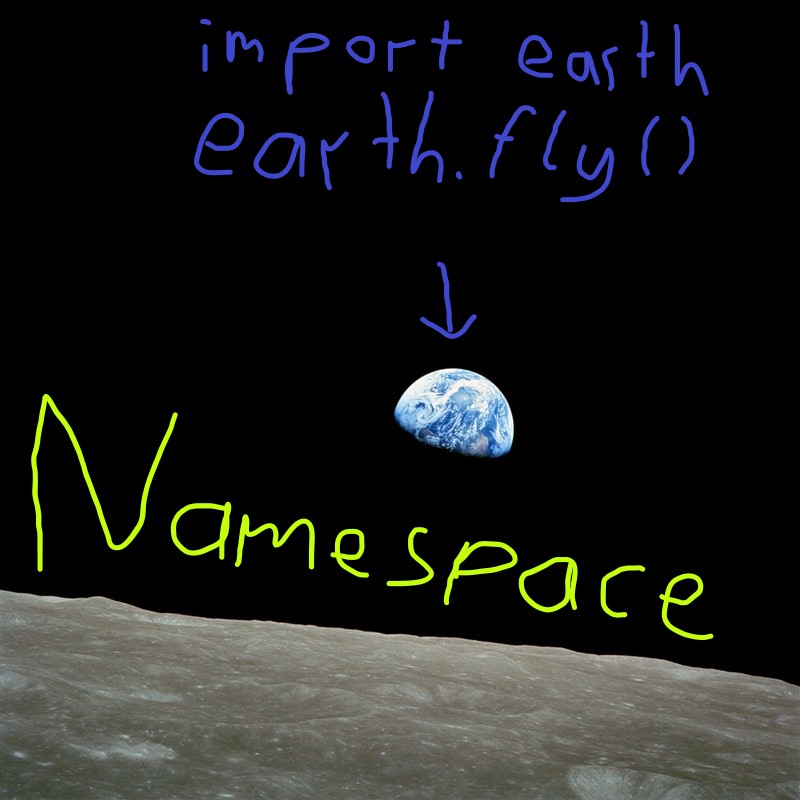 import earth
earth.fly()
Namespace